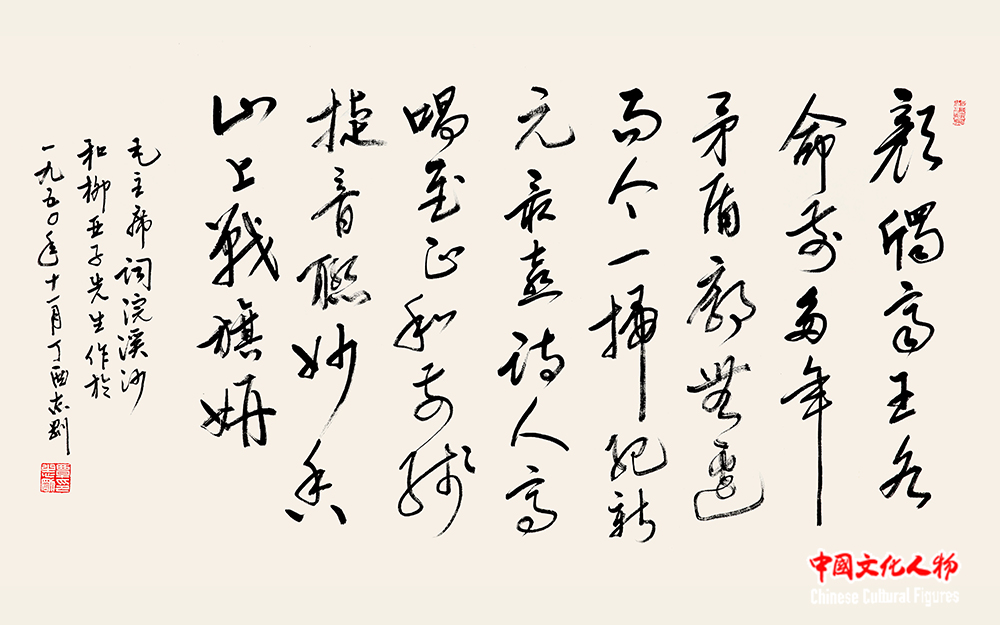 顏斶齊王各
命前多年
矛盾廓無邊
而今一掃紀新
元最喜詩人高
唱至正和前綫
捷音聯妙香
山上戰旗妍
毛主席詞浣溪沙
和柳亞子先生作於
一九五〇年十一月丁酉志剛
中國文化人物
Chinese Cultural Figures